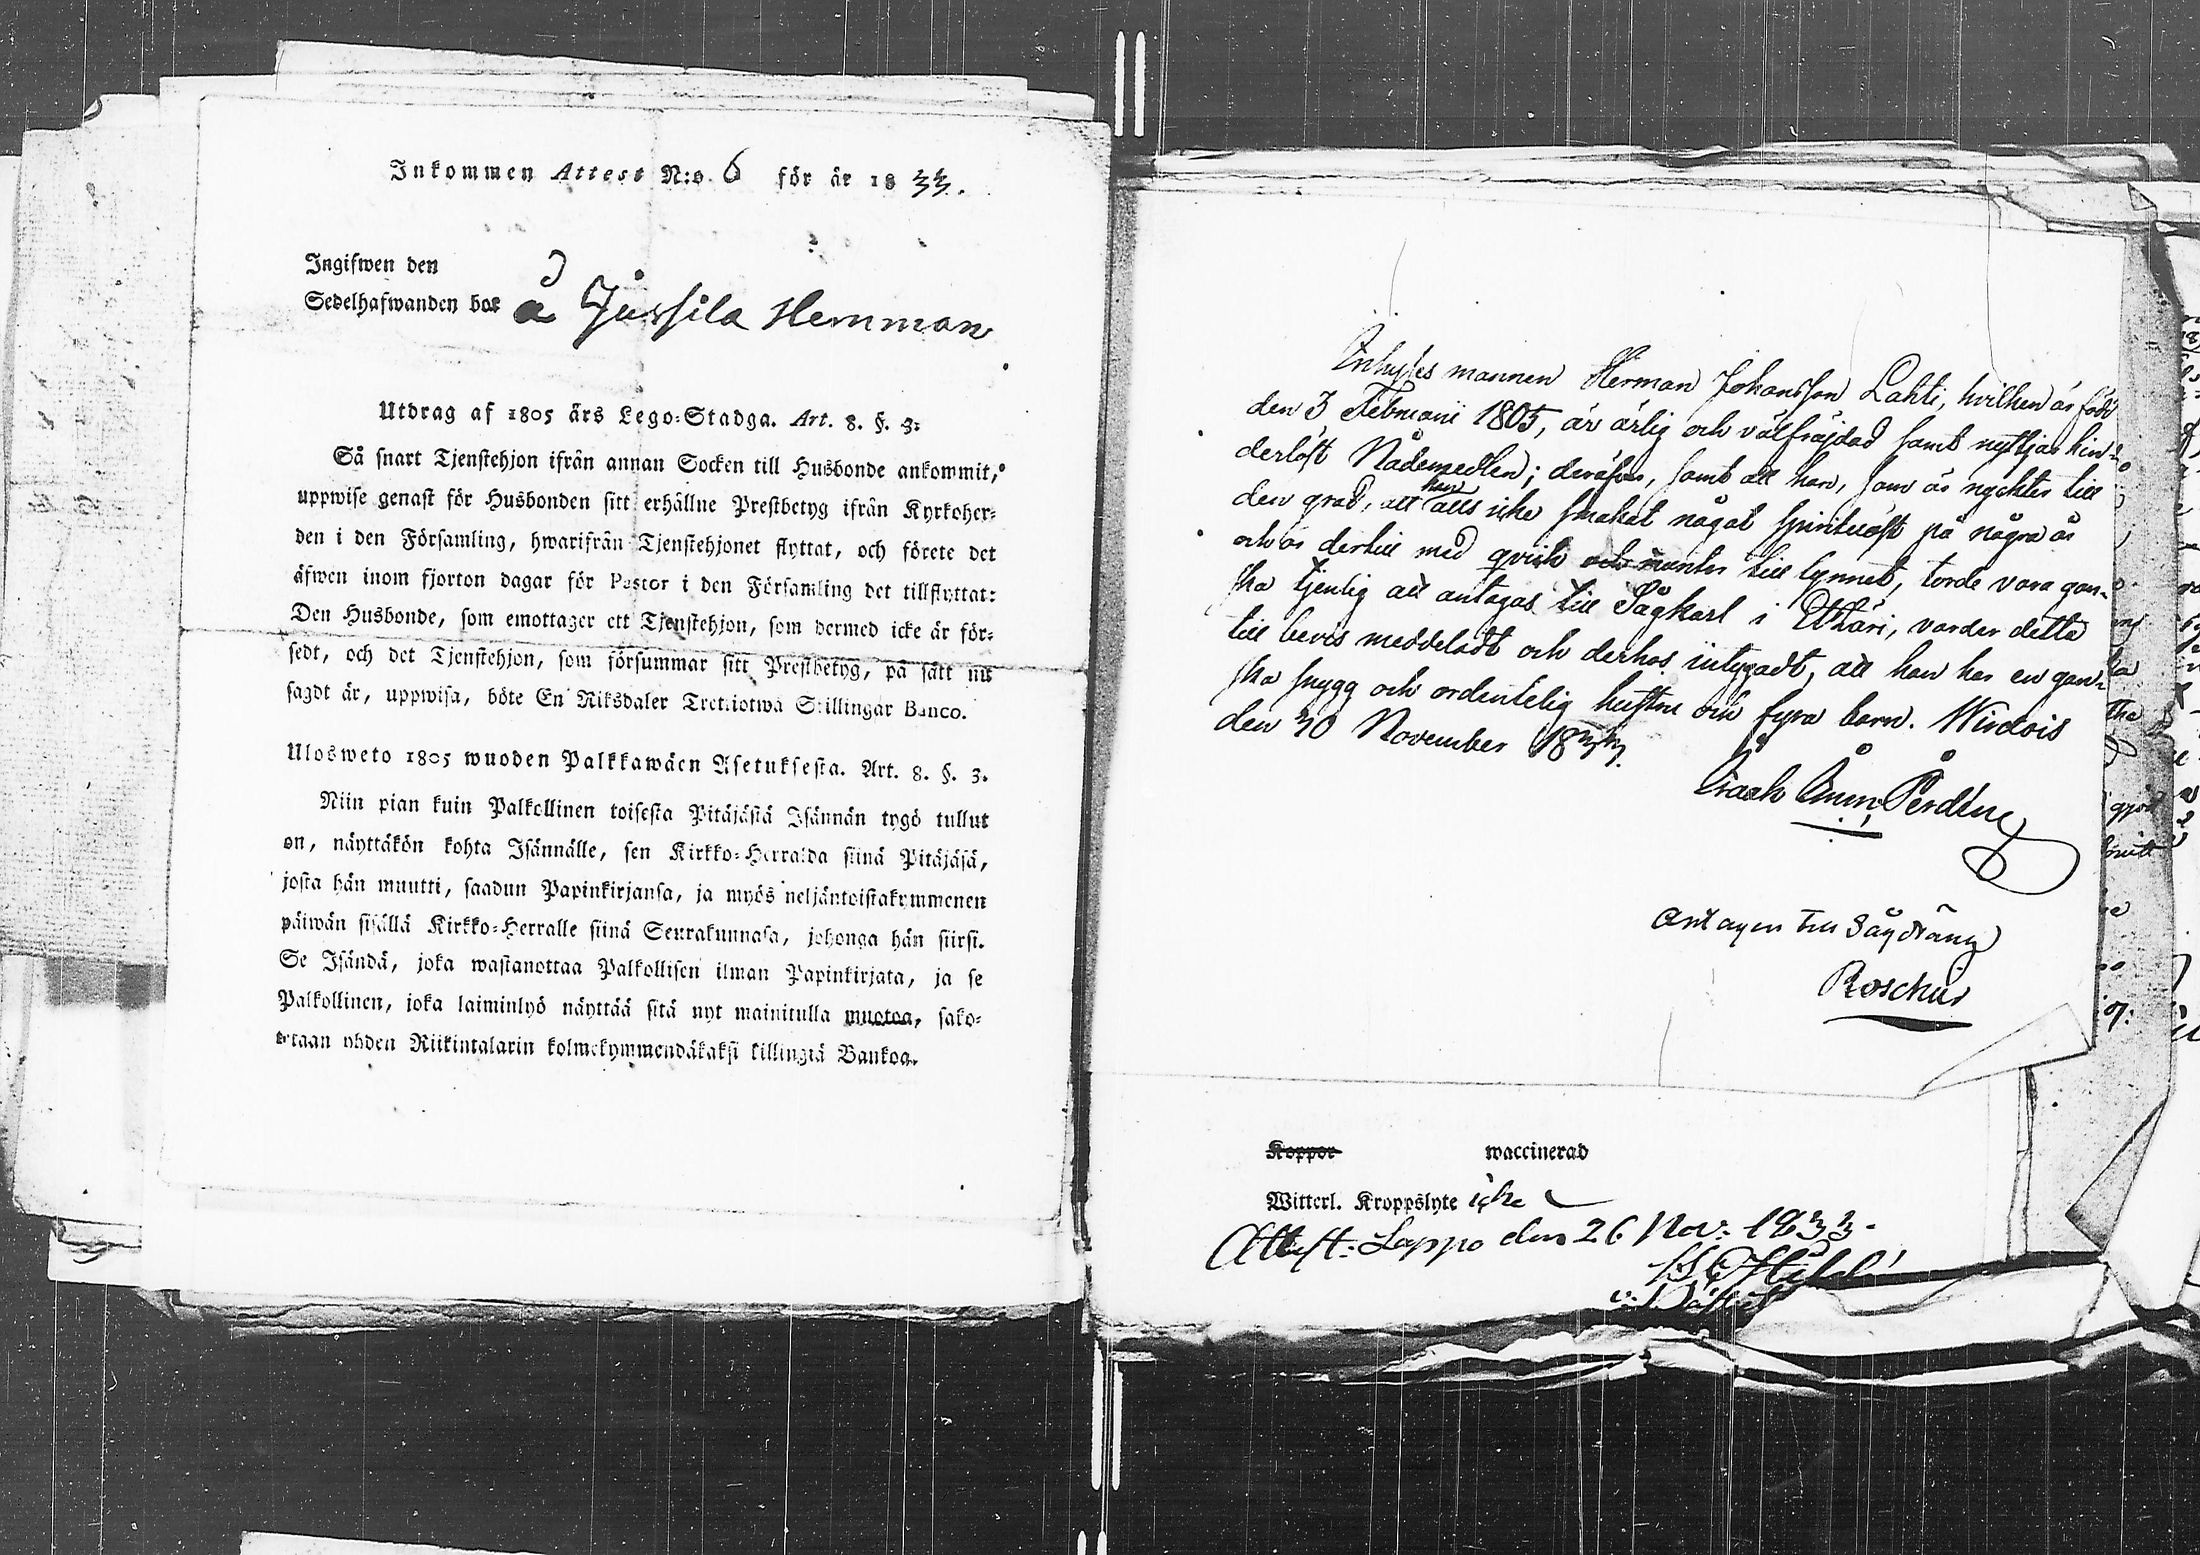 Inkommen Attest N:o 6 för år 1833.
Ingifwen den
Sedelhafwanden bor å Jussila Hemman
Utdrag af 1805 års Lego-Stadga. Art. 8. §. 3:
Så snart Tjenstehjon ifrån annan Socken till Husbonde ankommit,
uppwise genast för Husbonden sitt erhållne Prestbetyg ifrån Kyrkoher-
den i den Församling, hwarifrån Tjenstehjonet flyttat, och förete det
äfwen inom fjorton dagar för Pastor i den Församling det tillflyttat:
Den Husbonde, som emottager ett Tjenstehjon, som dermed icke är för-
sedt, och det Tjenstehjon, som försummar sitt Prestbetyg, på sätt nu
sagdt är, uppwisa, böte En Riksdaler Trettiotwå Skillingar Banco.
Ulosweto 1805 wuoden Palkkawäen Asetuksesta. Art. 8. §. 3.
Niin pian kuin Palkollinen toisesta Pitäjästä Isännän tygö tullut
on, näyttäkön kohta Isännälle, sen Kirkko-Herralda siinä Pitäjäsä,
josta hän muutti, saadun Papinkirjansa, ja myös neljäntoistakymmenen
päiwän sisällä Kirkko-Herralle siinä Seurakunnasa, johonga hän siirsi.
Se Isändä, joka wastanottaa Palkollisen ilman Papinkirjata, ja se
Palkollinen, joka laiminlyö näyttää sitä nyt mainitulla muotoa, sako-
tetaan yhden Riikintalarin kolmekymmendäkaksi killingiä Bankoa.
Inhyses mannen Herman Johansson Lahti, hvilken är född
den 3 Februarii 1805, är ärlig och välfräjdad samt nyttjar hin-
derlöst Nådemedlen; deräfver, samt att han, som är nykter till
den grad, att han alls icke smakat något spirituöst på några år
och är dertill med qvick och munter till lynnet, torde vara gan-
ska tjenlig att antagas till Sågkarl i Etseri, varder detta
till bevis meddeladt och derhos intygadt, att han har en gan-
ska snygg och ordentelig hustru och fyra barn. Wirdois
den 30 November 1833.
Antagen till Sågdräng
Roschier
Koppor waccinerad
Witterl. Kroppslyte icke
Attest: Lappo den 26 Nov: 1833.